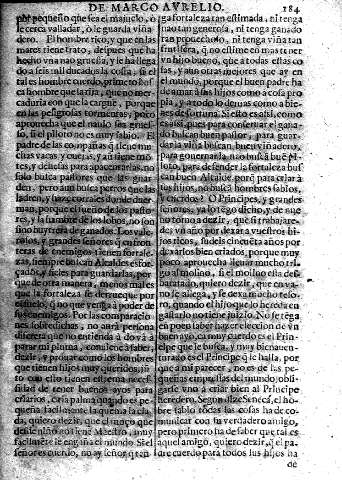 DE MARCO AVRELIO. 184
por pequeño que sea el majuelo, o
le cerca valladar, o le guarda viña
dero. El hombre rico, y que en las
mares tiene trato, despues que ha
hecho vna nao gruessa, y le ha llega
do a seis mil ducados la costa, si el
tal es hombre cuerdo, primero bus
ca hombre que la rija, que no mer-
caduria con que la cargue, porque
en las peligrosas tormentas, poco
aprouecha que el nauio sea grues-
so, si el piloto no es muy sabio. El
padre de las compañas q̃ tiene mu
chas vacas y ouejas, y assi tiene mõ
tes, y dehesas para apacentarlas, no
solo busca pastores que las guar
den, pero aun busca perros que las
ladren, y haze corrales donde duer-
man, porque el sueño de los pasto
res, y la hambre de los lobos, no son
sino buytrera de ganados. Los vale
rosos, y grandes señores q̃ en fron
teras de enemigos tienen fortale-
zas, siempre buscan Alcaldes esfor
çados, y fieles para guardarlas, por
que de otra manera, menos mal es
que la fortaleza se derrueque por
el suelo, q̃ no que venga a poder de
sus enemigos. Por las comparacio
nes sobredichas, no aurà persona
discreta que no entienda a do va a
parar mi pluma, conuiene a saber,
dezir, y prouar como los hombres
que tienen hijos muy queridos, jũ
to con ello tienen estrema neces-
sidad de tener buenos ayos para
criarlos,
queña facilmente la quema la ela
da, quiero dezir, que el moço que
desde niño no tiene Maestro, muy
facilmẽte le engaña el mundo. Si el
señor es cuerdo, no ay señor q̃ ten
ga fortaleza tan estimada, ni tenga
nao tan gruessa, ni tenga ganado
tan prouechoso, ni tenga viña tan
frutifera, q̃ no estime en mas tener
vn hijo bueno, que a todas ellas co
sas, y aun otras mejores que ay en
el mundo, porque el buen padre ha
de amar a los hijos como a cosa pro
pia, y a todo lo demas como a bie-
nes de fortuna. Si esto es assi, como
es assi, pues para conseruar el gana-
do buscan buen pastor, para guar-
dar la viña buscan buen viñadero,
para gouernar la nao buscã buẽ pi-
loto, para defender la fortaleza bus
can buen Alcalde, porq̃ para criar a
sus hijos, no buscã hombres sabios,
y cuerdos? O Principes, y grandes
señores, ya otra vez he dicho, y de nue
uo torno a dezir, que si trabajare-
des vn año por dexar a vuestros hi
jos ricos, sudeis cincuẽta años por
dexarlos bien criados, porque muy
poco aprouecha lleuar mucho tri-
go al molino, si el molino està des-
baratado, quiero dezir, que en va-
no se allega, y se dexa mucho teso-
ro, quando el hijo que lo hereda en
gastarlo no tiene juizio. No se tẽga
en poco saber hazer eleccion de vn
buen ayo, ca muy cuerdo es el Prin
cipe que le busca, y muy bienauen-
turado es el Principe q̃ le halla, por
que a mi parecer, no es de las pe-
queñas empressas del mundo, obli-
garse vno a criar bien al Principe
heredero. Segun dize Seneca, el ho-
bre sabio todas las cosas ha de co-
municar con su verdadero amigo,
pero primero ha de saber que tal es
aquel amigo, quiero dezir, q̃ el pa-
dre cuerdo para todos sus hijos ha
de